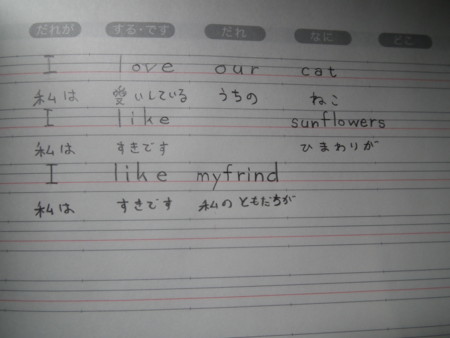 だれが する・です だれ なに どこ
I love our cat
私は 愛いしている うちの ねこ
I like sunflowers
私は すきです ひまわりが
I like myfrind
私は すきです 私のともだちが